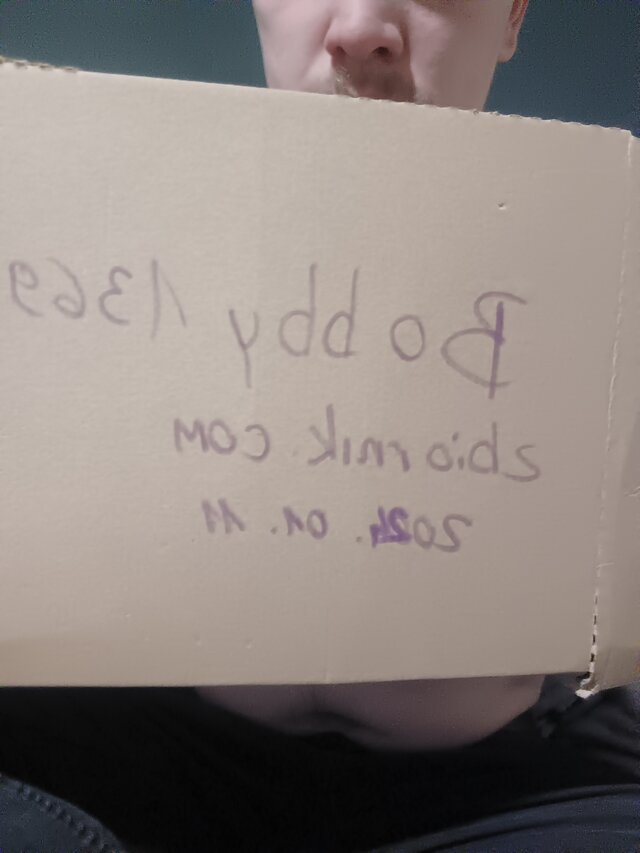 Bobby 1369
zbiornik.com
2024.01.11